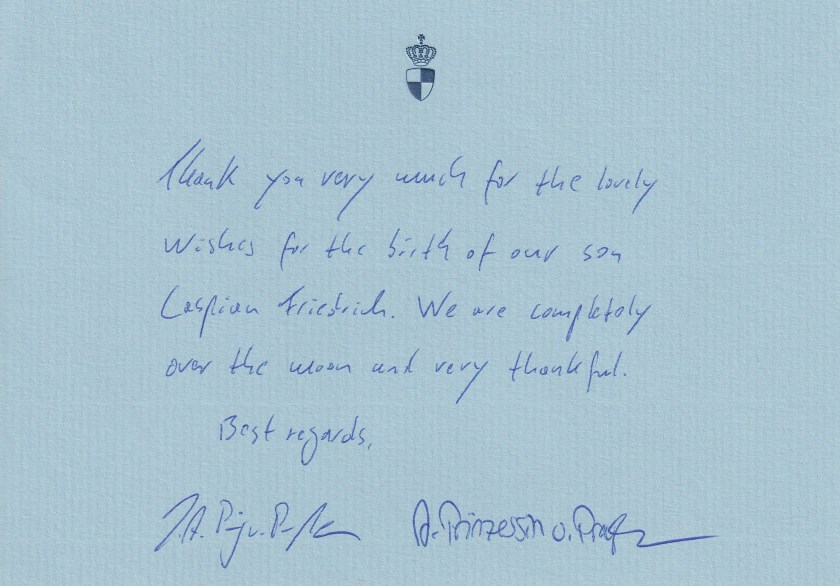 Thank you very much for the lovely
wishes for the birth of our son
Caspian Friedrich. We are completely
over the moon and very thankful.
Best regards,
A. Prinzessin v.